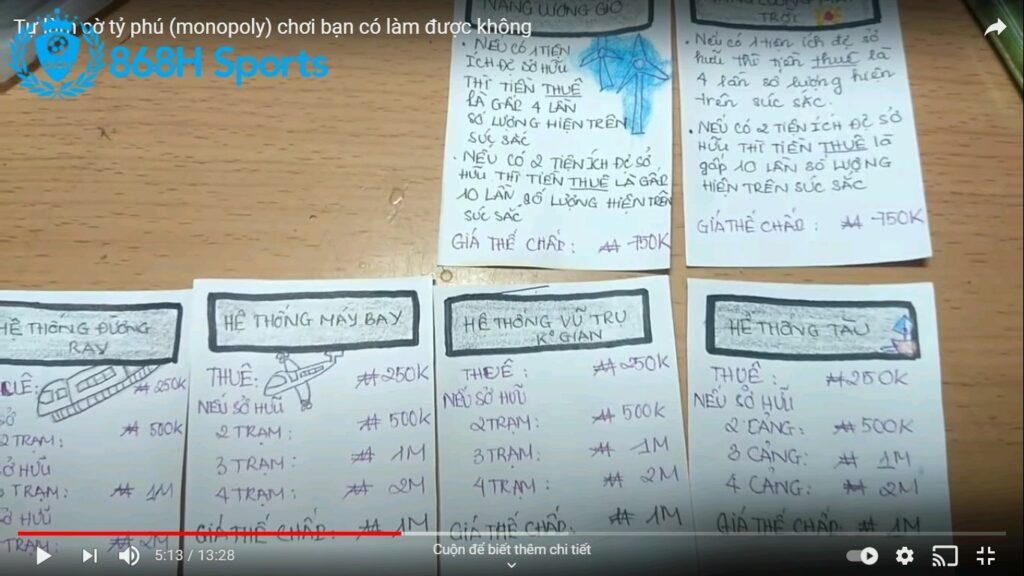 Tự làm cờ tỷ phú (monopoly) chơi bạn có làm được không
868H Sports
NĂNG LƯỢNG GIÓ
• NẾU CÓ 1 TIỆN
ÍCH ĐC SỞ HỮU
THÌ TIỀN THUÊ
LÀ GẤP 4 LẦN
SỐ LƯỢNG HIỆN TRÊN
SÚC SẮC
• NẾU CÓ 2 TIỆN ÍCH ĐC SỞ
HỮU THÌ TIỀN THUÊ LÀ GẤP
10 LẦN SỐ LƯỢNG HIỆN TRÊN
SÚC SẮC
GIÁ THẾ CHẤP: 750K
TRỜI
• Nếu có 1 tiện ích đc sở
hữu thì tiền thuê là
4 lần số lượng hiện
trên súc sắc.
• NẾU CÓ 2 TIỆN ÍCH ĐC SỞ
HỮU THÌ TIỀN THUÊ là
gấp 10 LẦN SỐ LƯỢNG
HIỆN TRÊN SÚC SẮC
GIÁ THẾ CHẤP: 750K
HỆ THỐNG ĐƯỜNG
RAY
THUÊ: 250K
SỞ
2 TRẠM: 500K
SỞ HỮU
TRẠM: 1M
SỞ HỮU
TRẠM: 2M
HỆ THỐNG MÁY BAY
THUÊ: 250K
NẾU SỞ HỮU
2 TRẠM: 500K
3 TRẠM: 1M
4 TRẠM: 2M
GIÁ THẾ CHẤP: 1M
HỆ THỐNG VŨ TRỤ
K° GIAN
THUÊ: 250K
NẾU SỞ HỮU
2 TRẠM: 500K
3 TRẠM: 1M
4 TRẠM: 2M
GIÁ THẾ CHẤP: 1M
HỆ THỐNG TÀU
THUÊ: 250K
NẾU SỞ HỮU
2 CẢNG: 500K
3 CẢNG: 1M
4 CẢNG: 2M
GIÁ THẾ CHẤP: 1M
5:13 / 13:28
Cuộn để biết thêm chi tiết